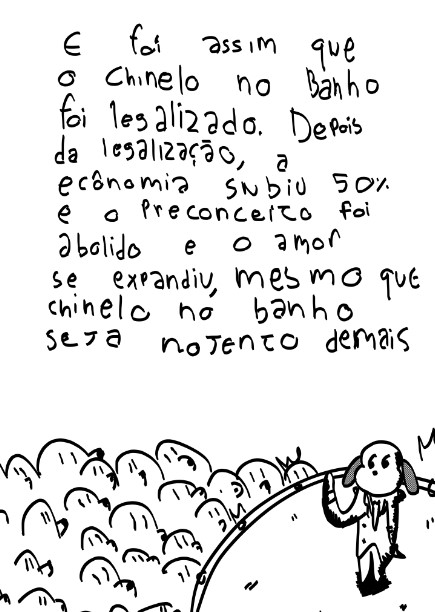 E foi assim que
o chinelo no Banho
foi legalizado. Depois
da legalização, a
ecônomia subiu 50%
e o Preconceito foi
abolido e o amor
se expandiu, mesmo que
chinelo no banho
seja nojento demais